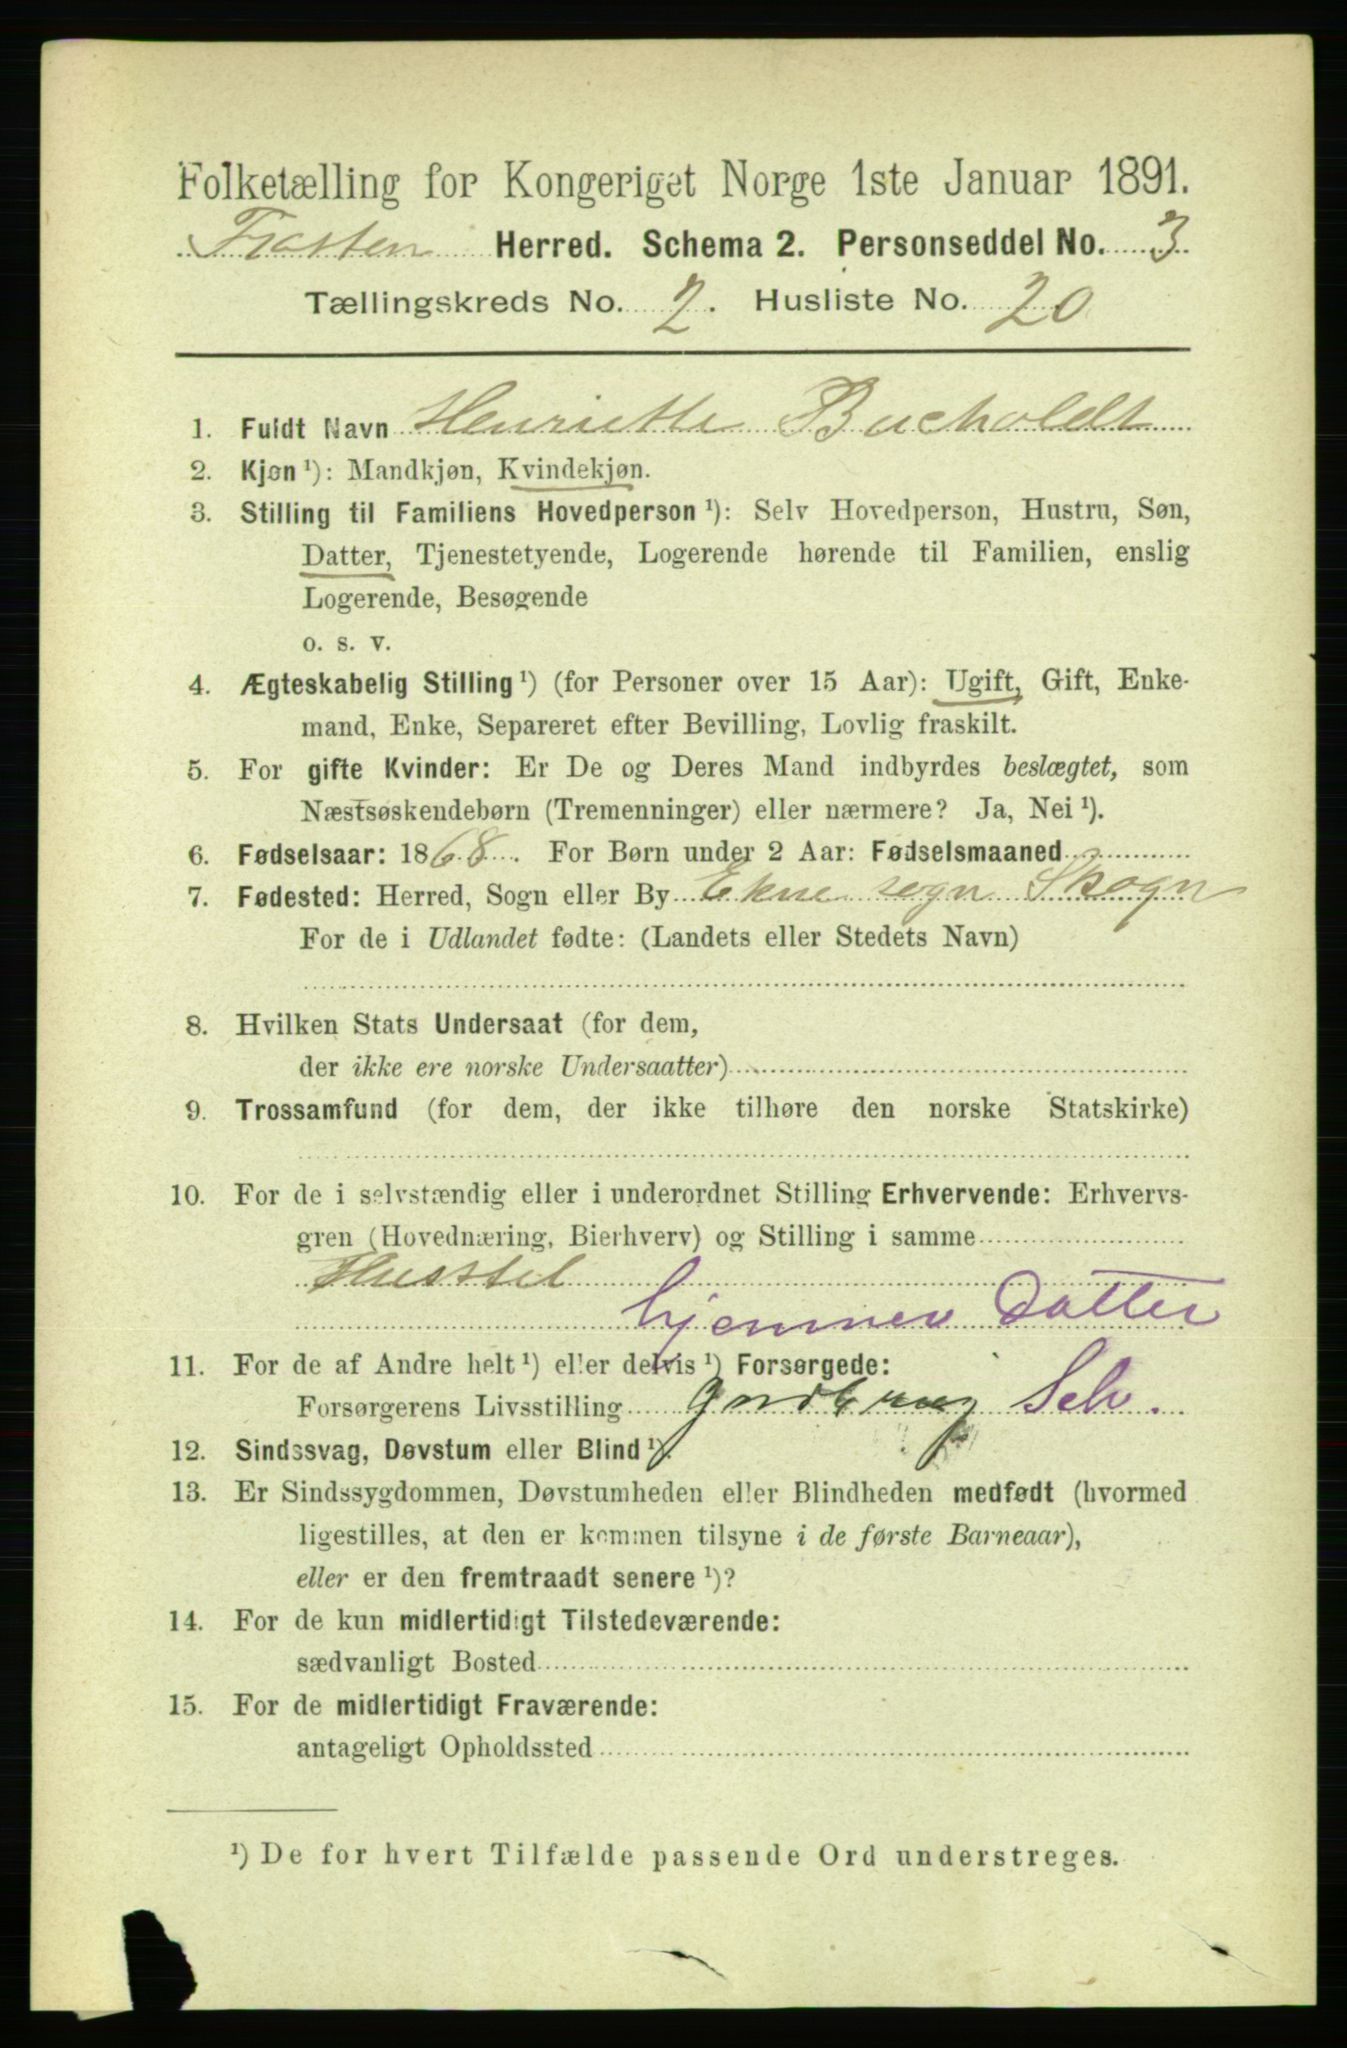 Folketælling for Kongeriget Norge 1ste Januar 1891.
Frosten Herred. Schema 2. Personseddel No. 3
Tællingskreds No. 2. Husliste No. 20
1. Fuldt Navn Henriette Bucholdt
2. Kjøn ¹): Mandkjøn, Kvindekjøn.
3. Stilling til Familiens Hovedperson ¹): Selv Hovedperson, Hustru, Søn,
Datter, Tjenestetyende, Logerende hørende til Familien, enslig
Logerende, Besøgende
o. s. v.
4. Ægteskabelig Stilling ¹) (for Personer over 15 Aar): Ugift, Gift, Enke-
mand, Enke, Separeret efter Bevilling, Lovlig fraskilt.
5. For gifte Kvinder: Er De og Deres Mand indbyrdes beslægtet, som
Næstsøskendebørn (Tremenninger) eller nærmere? Ja, Nei ¹).
6. Fødselsaar: 1868. For Børn under 2 Aar: Fødselsmaaned
7. Fødested: Herred, Sogn eller By Ekne sogn Skogn
For de i Udlandet fødte: (Landets eller Stedets Navn)
8. Hvilken Stats Undersaat (for dem,
der ikke ere norske Undersaatter)
9. Trossamfund (for dem, der ikke tilhøre den norske Statskirke)
10. For de i selvstændig eller i underordnet Stilling Erhvervende: Erhvervs-
gren (Hovednæring, Bierhverv) og Stilling i samme
Husstel
hjemmev Datter
11. For de af Andre helt ¹) eller delvis ¹) Forsørgede:
Forsørgerens Livsstilling Selv.
12. Sindssvag, Døvstum eller Blind ¹).
13. Er Sindssygdommen, Døvstumheden eller Blindheden medfødt (hvormed
ligestilles, at den er kommen tilsyne i de første Barneaar),
eller er den fremtraadt senere ¹)?
14. For de kun midlertidigt Tilstedeværende:
sædvanligt Bosted
15. For de midlertidigt Fraværende:
antageligt Opholdssted
¹) De for hvert Tilfælde passende Ord understreges.